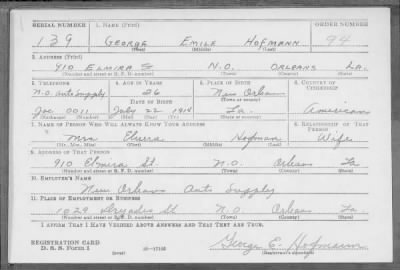 SERIAL NUMBER 1. NAME (Print) ORDER NUMBER
139 GEORGE EMILE HOFMANN 94
(First) (Middle) (Last)
2. ADDRESS (Print)
910 ELMIRA St N.O. ORLEANS LA.
(Number and street or R. F. D. number) (Town) (County) (State)
3. TELEPHONE 4. AGE IN YEARS 5. PLACE OF BIRTH 6. COUNTRY OF CITIZENSHIP
N.O. Auto Supply 26 New Orleans
DATE OF BIRTH (Town or county)
0011 July 22 1914 La. American
(Exchange) (Number) (Mo.) (Day) (Yr.) (State or country)
7. NAME OF PERSON WHO WILL ALWAYS KNOW YOUR ADDRESS 8. RELATIONSHIP OF THAT PERSON
Mrs Hofmann Wife
(Mr., Mrs., Miss) (First) (Middle) (Last)
9. ADDRESS OF THAT PERSON
910 Elmira St. N.O. Orleans La
(Number and street or R. F. D. number) (Town) (County) (State)
10. EMPLOYER'S NAME
New Orleans Auto Supply
11. PLACE OF EMPLOYMENT OR BUSINESS
1029 Dryades St N.O. Orleans La.
(Number and street or R. F. D. number) (Town) (County) (State)
I AFFIRM THAT I HAVE VERIFIED ABOVE ANSWERS AND THAT THEY ARE TRUE.
REGISTRATION CARD
D. S. S. Form 1 George E. Hofmann
(over) (Registrant's signature)